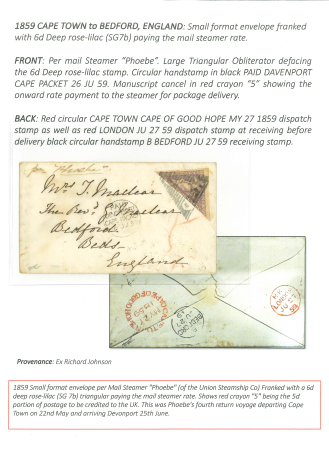 1859 CAPE TOWN to BEDFORD, ENGLAND: Small format envelope franked
with 6d Deep rose-lilac (SG7b) paying the mail steamer rate.
FRONT: Per mail Steamer “Phoebe”. Large Triangular Obliterator defacing
the 6d Deep rose-lilac stamp. Circular handstamp in black PAID DAVENPORT
CAPE PACKET 26 JU 59. Manuscript cancel in red crayon “5” showing the
onward rate payment to the steamer for package delivery.
BACK: Red circular CAPE TOWN CAPE OF GOOD HOPE MY 27 1859 dispatch
stamp as well as red LONDON JU 27 59 dispatch stamp at receiving before
delivery black circular handstamp B BEDFORD JU 27 59 receiving stamp.
per "Phoebe"
Mrs. T. Maclear
The Revd.
Bedford
Beds
England
Provenance: Ex Richard Johnson
1859 Small format envelope per Mail Steamer “Phoebe” (of the Union Steamship Co) Franked with a 6d
deep rose-lilac (SG 7b) triangular paying the mail steamer rate. Shows red crayon “5” being the 5d
portion of postage to be credited to the UK. This was Phoebe’s fourth return voyage departing Cape
Town on 22nd May and arriving Devonport 25th June.